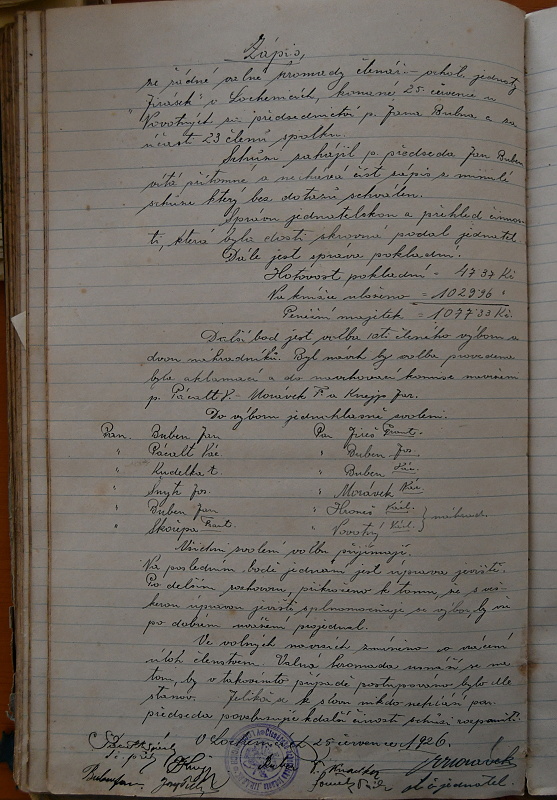 Zápis,
ze řádné valné hromady členů - ochot. jednoty
"Jirásek" v Lochenicích, konané 25. července u
Novotných za předsednictví p. Jana Bubna a za
účasti 23 členů spolku.
Schůzi zahájil p. předseda Jan Buben
vítá přítomné a nechává čísti zápis z minulé
schůze který bez dotazů schválen.
Zpravu jednatelskou a přehled činnos-
ti, která byla dosti skrovná podal jednatel.
Dále jest zprava pokladní.
Hotovost pokladní = 47.37 Kč
Na knížce uloženo = 1029.96 "
Peněžní majetek = 1077.33 Kč.
Další bod jest volba členého výboru a
dvou náhradníků. Byl návrh by volba provedena
byla aklamací a do navrhovací komise navrženi
p. Pácalt V. - Morávek Fr. a Knejp Jar.
Do výboru jednohlasně zvoleni:
Pan. Buben Jan Pan Jireš Frant.
" Pácalt Vác. " Buben Jos.
" Kudelka t. " Buben Vác.
" Šnajdr Jos. " Morávek Vác.
" Buben Jan " Hroneš Karl. } náhrad.
" Skořepa Frant. " Novotný Karl.
Všichni zvolení volbu přijímají.
Na posledním bodě jednání jest úprava jeviště.
Po delším rozhovoru, přikročeno k tomu, že s veš-
kerou úpravou jeviště splnomocňuje se výbor, by vše
po dobrém uvážení projednal.
Ve volných návrzích zmíněno o vrácení
úloh členstvem. Valná hromada usnáší se na
tom, by v takovémto případě postupováno bylo dle
stanov. Jelikož se k slovu nikdo nehlásí pan
předseda povzbuzuje k další činosti schůzi rozpouští.
V Lochenicích 25 července 1926.
Buben Jan
Fr. Morávek
t. č. jednatel.